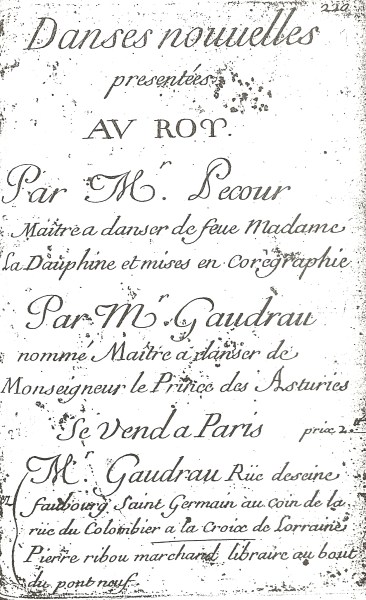 210
Danses nouuelles
presentées
AV ROY.
Par Mr. Pecour
Maitre a danser de feue Madame
la Dauphine et mises en Corégraphie
Par Mr. Gaudrau
nommé Maitre a danser de
Monseigneur le Prince des Asturies
Se Vend a Paris prix 2.
Mr. Gaudrau Rüe deseine
faubourg Saint Germain au coin de la
rüe du Colombier a la Croix de Lorraine
Pierre ribou marchand libraire au bout
du pont neuf